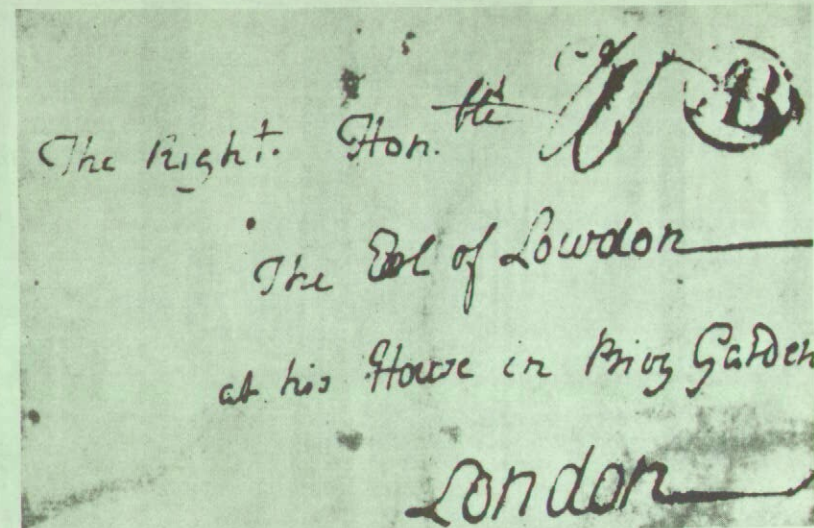 The Right. Hon.ble B
The Earl of Lowdon
at his House in Privy Garden
London